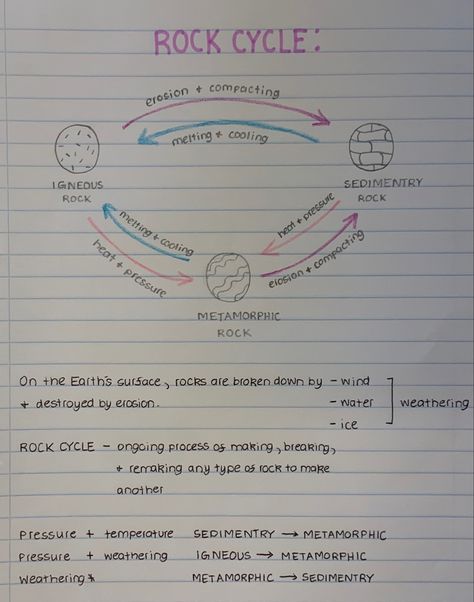 ROCK CYCLE:
erosion + compacting
melting + cooling
IGNEOUS
ROCK
SEDIMENTRY
ROCK
melting + cooling
heat + pressure
heat + pressure
erosion + compacting
METAMORPHIC
ROCK
On the Earth's surface, rocks are broken down by - wind
+ destroyed by erosion. - water weathering
- ice
ROCK CYCLE - ongoing process of making, breaking,
+ remaking any type of rock to make
another
Pressure + temperature SEDIMENTRY → METAMORPHIC
Pressure + weathering IGNEOUS → METAMORPHIC
Weathering* METAMORPHIC → SEDIMENTRY